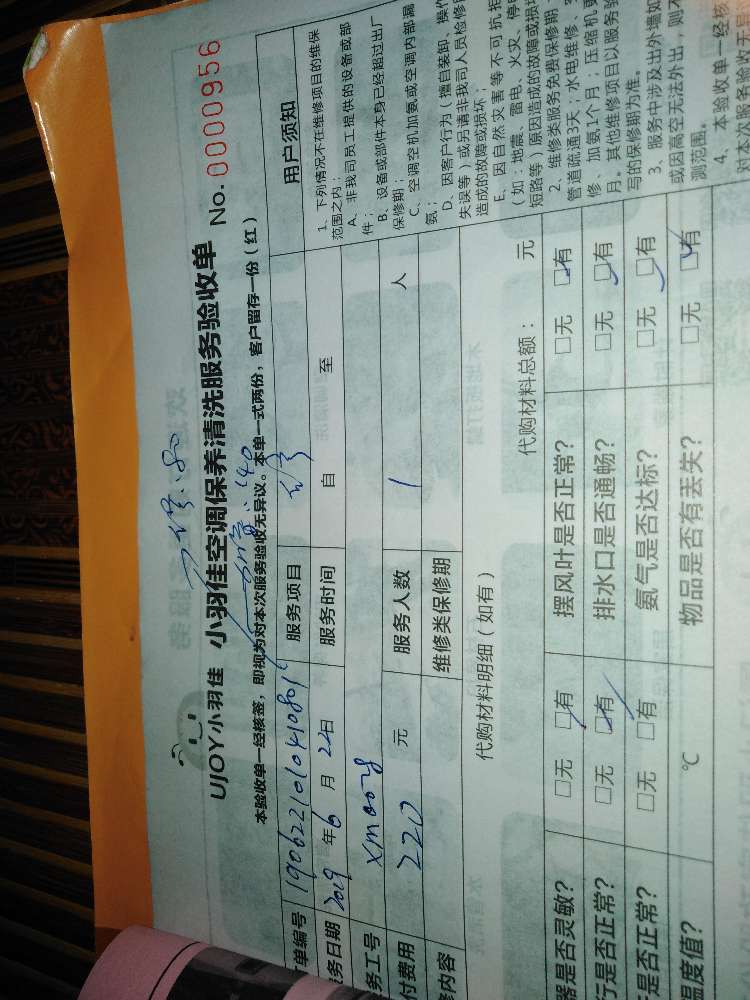 UJOY小羽佳 小羽佳空调保养清洗服务验收单 No.0000956
本验收单一经核签，即视为对本次服务验收无异议。本单一式两份，客户留存一份（红）
单编号
服务项目 修
用户须知
务日期 2019年6月22日 服务时间 自 至
务工号 xm008
付费用 220 元 服务人数 1 人
修内容 维修类保修期
代购材料明细（如有） 代购材料总额： 元
1、下列情况不在维修项目的维保
范围之内：
A、非我司员工提供的设备或部
件；
B、设备或部件本身已经超过出厂
保修期；
C、空调空机加氨或空调内部漏
氨；
D、因客户行为（擅自装卸、操作
失误等）或另请非我司人员检修
造成的故障或损坏；
E、因自然灾害等不可抗拒
（如：地震、雷电、火灾、停
短路等）原因造成的故障或损坏
2、维修类服务免费保修期
管道疏通3天；水电维修、
修、加氨1个月；压缩机更
月。其他维修项目以服务验
写的保修期为准。
3、服务中涉及出外墙
或因高空无法外出，则不
测范围。
4、本验收单一经核
对本次服务验收无异
器是否灵敏？ □无 □有 摆风叶是否正常？ □无 □有
行是否正常？ □无 □有 排水口是否通畅？ □无 □有
是否正常？ □无 □有 氨气是否达标？ □无 □有
温度值？ ℃ 物品是否有丢失？ □无 □有